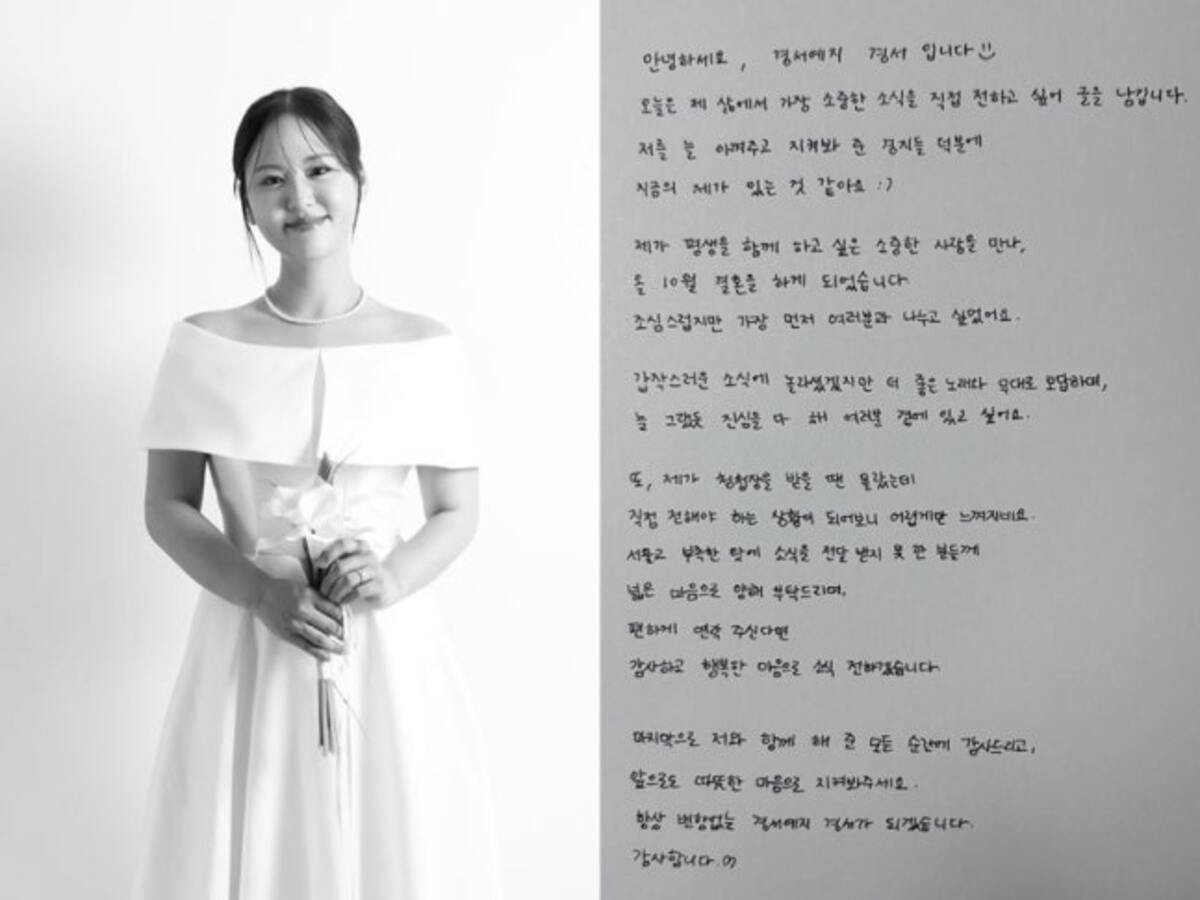 안녕하세요, 경서예지 경서 입니다
오늘은 제 삶에서 가장 소중한 소식을 직접 전하고 싶어 글을 남깁니다.
저를 늘 아껴주고 지켜봐 준 경지들 덕분에
지금의 제가 있는 것 같아요 :)
제가 평생을 함께 하고 싶은 소중한 사람을 만나,
올 10월 결혼을 하게 되었습니다
조심스럽지만 가장 먼저 여러분과 나누고 싶었어요.
갑작스러운 소식에 놀라셨겠지만 더 좋은 노래와 무대로 보답하며,
늘 그랬듯 진심을 다 해 여러분 곁에 있고 싶어요.
또, 제가 청첩장을 받을 땐 몰랐는데
직접 전해야 하는 상황이 되어보니 어렵게만 느껴지네요.
서툴고 부족한 탓에 소식을 전달 받지 못 한 분들께
넓은 마음으로 양해 부탁드리며,
편하게 연락 주신다면
감사하고 행복한 마음으로 소식 전하겠습니다
마지막으로 저와 함께 해 준 모든 순간에 감사드리고,
앞으로도 따뜻한 마음으로 지켜봐주세요.
항상 변함없는 경서예지 경서가 되겠습니다.
감사합니다.